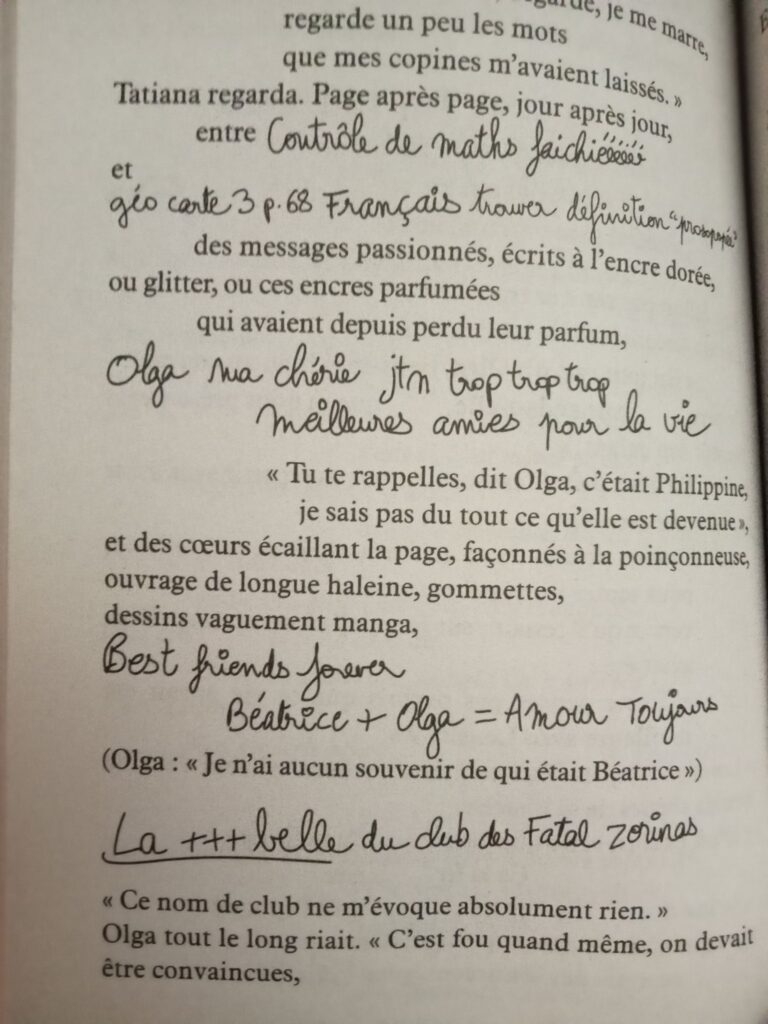 regarde, je me marre,
regarde un peu les mots
que mes copines m’avaient laissés. »
Tatiana regarda. Page après page, jour après jour,
entre Contrôle de maths faichiééééé
et
géo carte 3 p.68 Français trouver définition “prosopopée”
des messages passionnés, écrits à l’encre dorée,
ou glitter, ou ces encres parfumées
qui avaient depuis perdu leur parfum,
Olga ma chérie jtm trop trop trop
meilleures amies pour la vie
« Tu te rappelles, dit Olga, c’était Philippine,
je sais pas du tout ce qu’elle est devenue »,
et des cœurs écaillant la page, façonnés à la poinçonneuse,
ouvrage de longue haleine, gommettes,
dessins vaguement manga,
Best friends forever
Béatrice + Olga = Amour Toujours
(Olga : « Je n’ai aucun souvenir de qui était Béatrice »)
La +++ belle du club des Fatal Zorinas
« Ce nom de club ne m’évoque absolument rien. »
Olga tout le long riait. « C’est fou quand même, on devait
être convaincues,